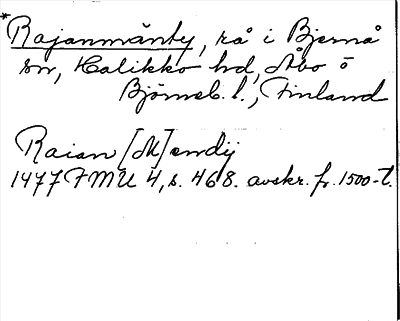 *
Rajanmänty, rå i Bjernå
sn, Halikko hd, Åbo o
Björneb. l., Finland
Raian [M]endij
1477 FMU 4, s. 468. avskr. fr. 1500-t.